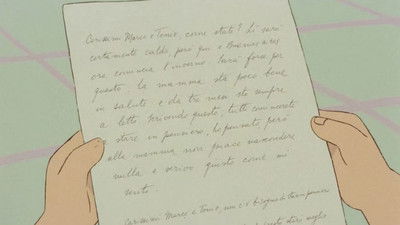 Carissimi Marco e Tonio, come state? Lì sarà
certamente caldo, però qui a Buenos Aires
ora comincia l'inverno. Sarà forse per
questo la mamma sta poco bene
in salute e da tre mesi sta sempre
a letto. Scrivendo questo, tutti comincerete
a stare in pensiero, ho pensato, però
alla mamma non piace nascondere
nulla e scrivo questo come mi
sento.
Carissimi Marco e Tonio, non c'è bisogno di